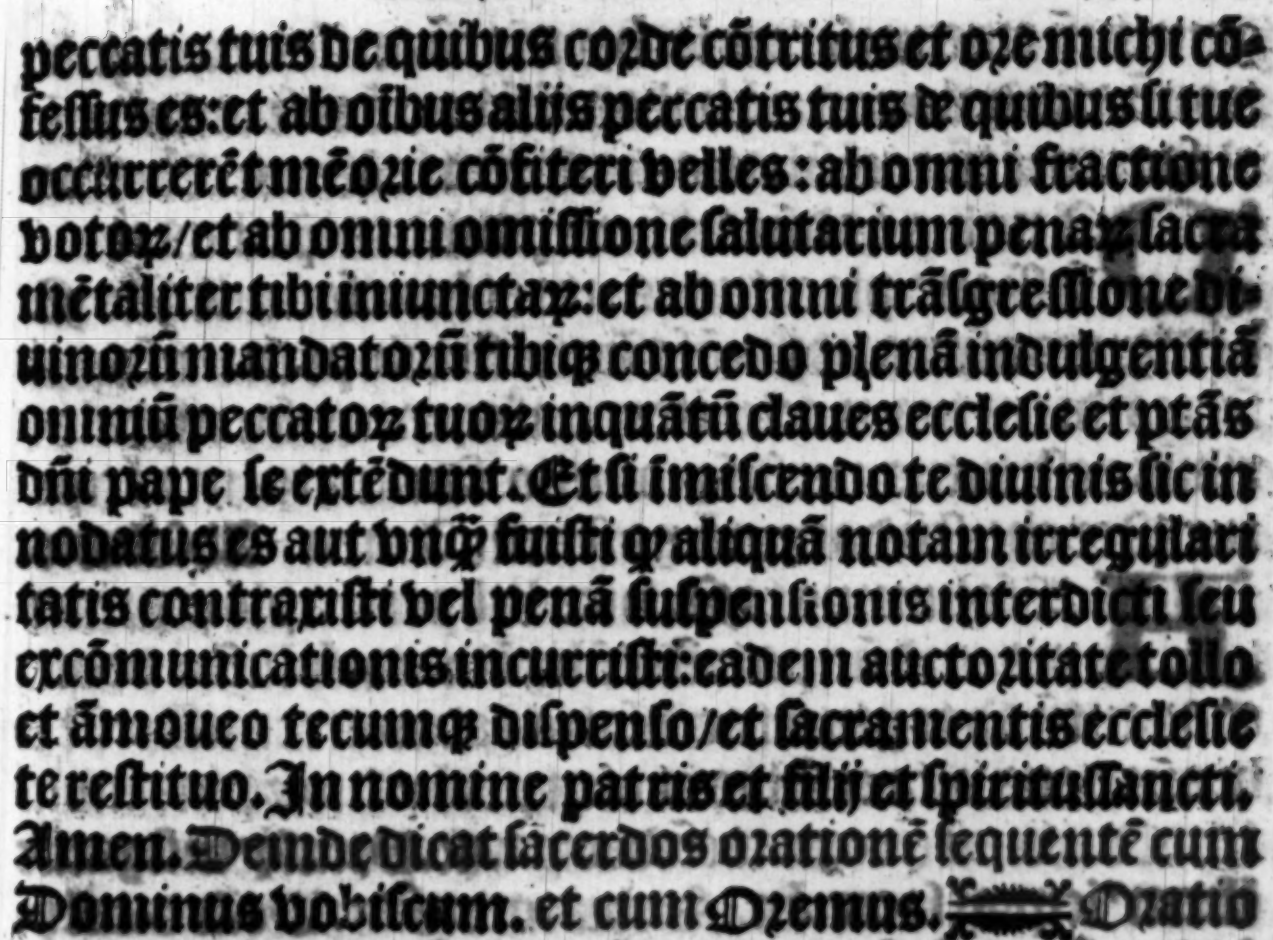 peccatis tuis de quibus corde cōtritus et ore michi cō-
fessus es: et ab oībus aliis peccatis tuis de quibus si tue
occurrerēt mēorie cōfiteri velles: ab omni fractione
votoꝝ/et ab omni omissione salutarium penaꝝ sacra
mētaliter tibi iniunctaꝝ: et ab omni trāsgressione di-
uinorū mandatorū tibiqꝫ concedo plenā indulgentiā
omniū peccatoꝝ tuoꝝ inquātū claues ecclesie et ptās
dn̄i pape se extēdunt. Et si īmiscendo te diuinis sic in
nodatus es aut vnq̄ȝ fuisti ꝙ aliquā notam irregulari
tatis contraxisti vel penā suspensionis interdicti seu
excōmunicationis incurristi: eadem auctoritate tollo
et āmoueo tecumqꝫ dispenso/et sacramentis ecclesie
te restituo. In nomine patris et filij et spiritussancti.
Amen. Deinde dicat sacerdos orationē sequentē cum
Dominus vobiscum. et cum Oremus. Oratio